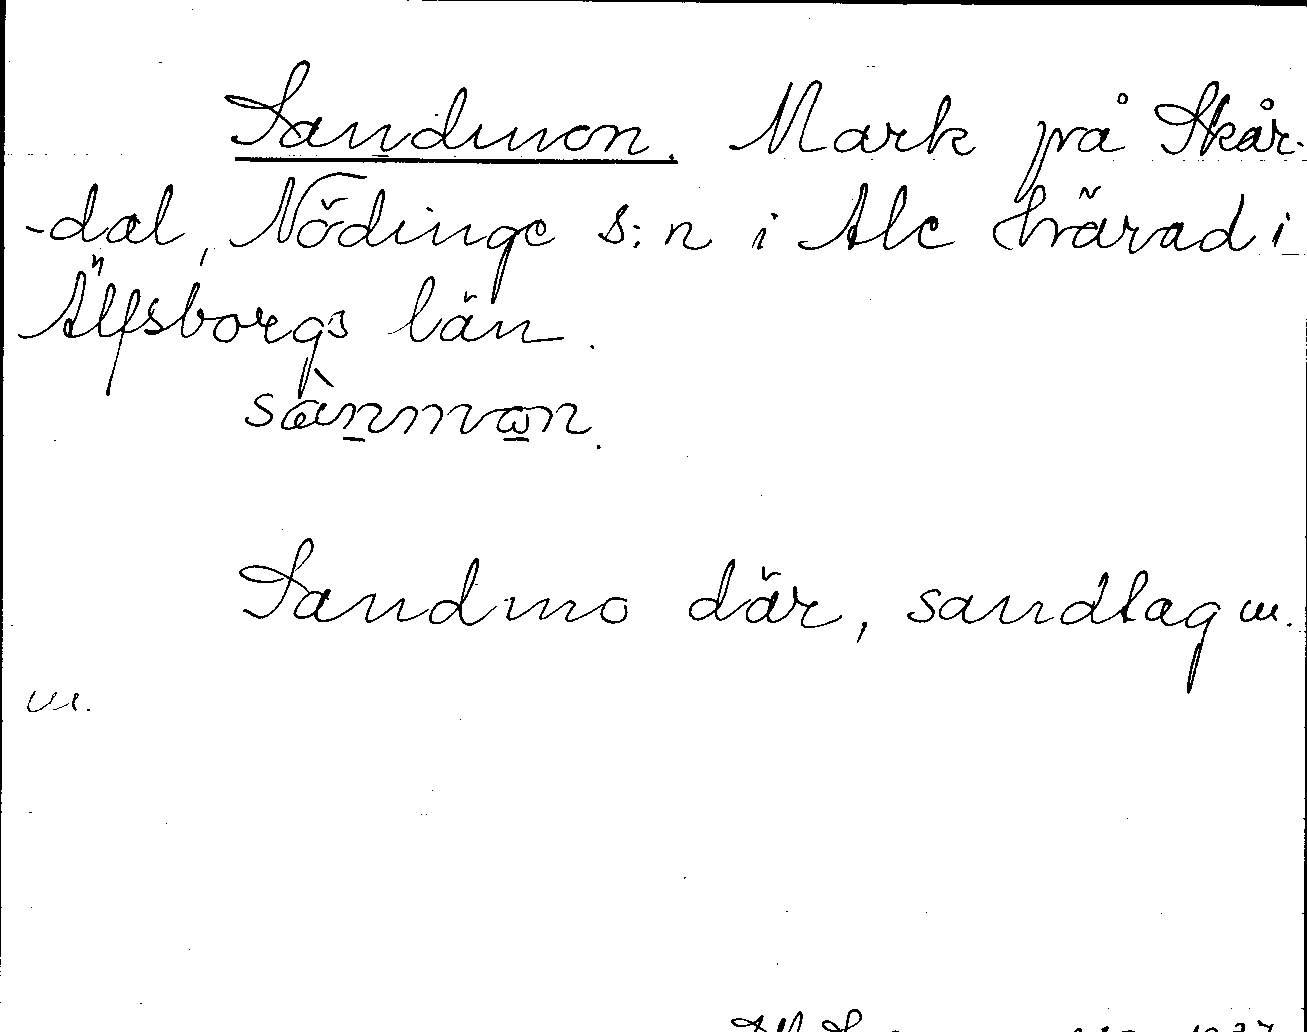 Sandmon. Mark på Skår-
-dal, Nödinge s:n i Ale härad i
Älfsborgs län.
sànmωn.
Sandmo där, sandtag m.
m.